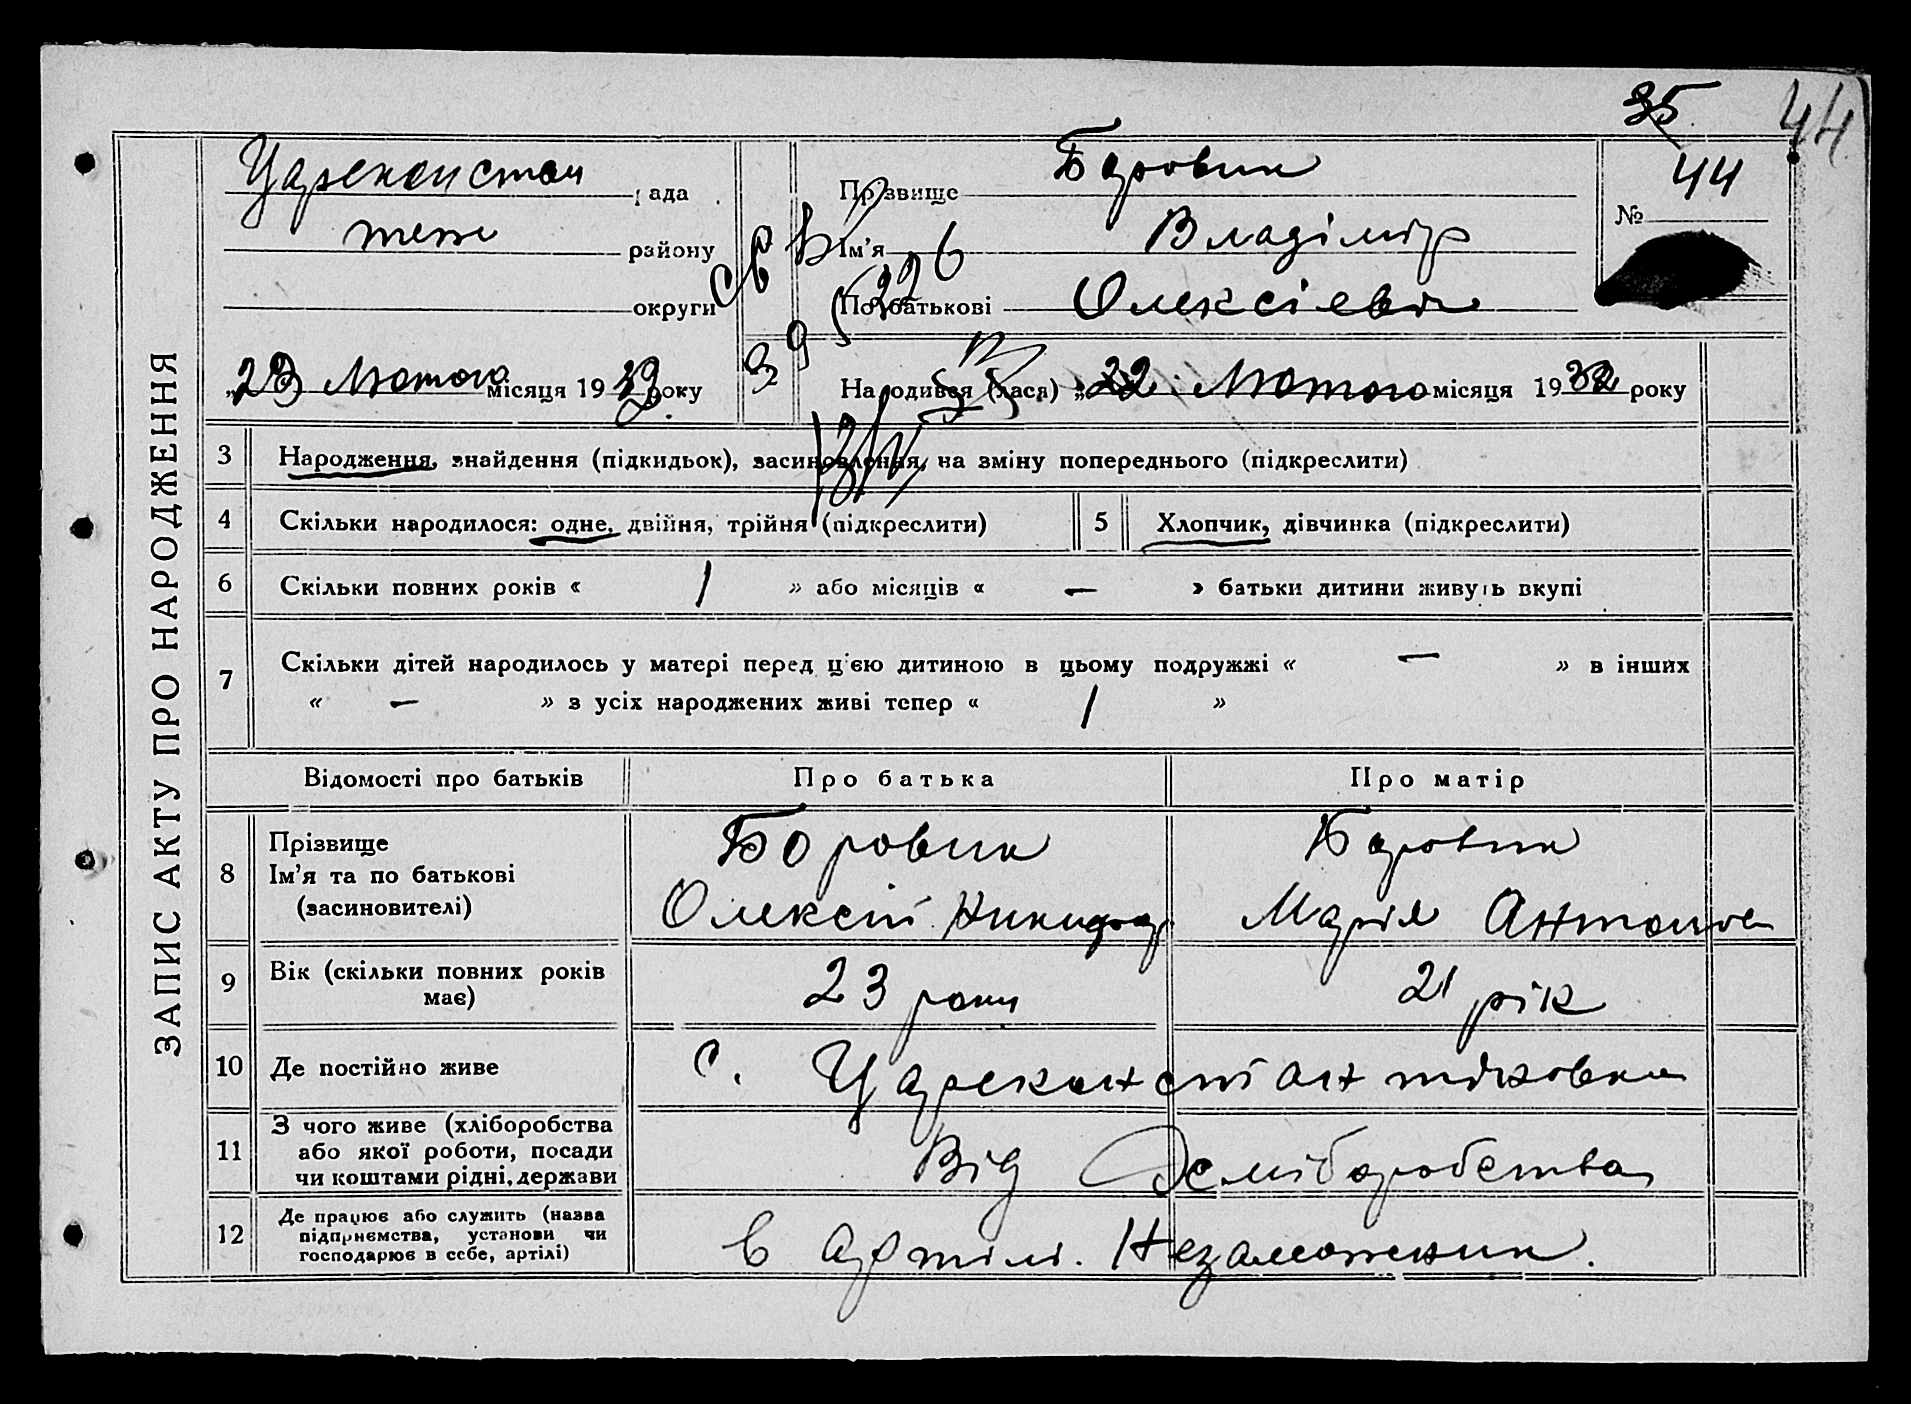 35
44
Царекоистан рада
теж району
округи
Прізвище Боровик
Ім'я Владімір
По батькові Олексієвіч
№ 44
"23 Лютого місяця 1932 року
Народився (лася) „22. Лютого місяця 1932 року
ЗАПИС АКТУ ПРО НАРОДЖЕННЯ
3 Народження, знайдення (підкидьок), засиновлення, на зміну попереднього (підкреслити)
4 Скільки народилося: одне, двійня, трійня (підкреслити)
5 Хлопчик, дівчинка (підкреслити)
6 Скільки повних років « 1 » або місяців « — » батьки дитини живуть вкупі
7 Скільки дітей народилось у матері перед ц'єю дитиною в цьому подружжі « — » в інших
« — » з усіх народжених живі тепер « 1 »
Відомості про батьків Про батька Про матір
8 Прізвище
Ім'я та по батькові
(засиновителі)
Боровик
Олексій Никифор.
Боровик
Марія Антонов
9 Вік (скільки повних років
має)
23 роки
21 рік
10 Де постійно живе
с. Цареконстантіновка
11 З чого живе (хліборобства
або якої роботи, посади
чи коштами рідні, держави
Від хліборобства
12 Де працює або служить (назва
підприємства, установи чи
господарює в себе, артілі)
в артілі. Незаможник.